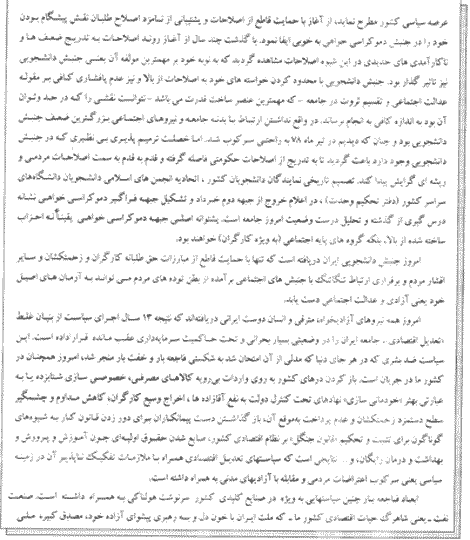 عرصه سیاسی کشور مطرح نماید، از آغاز با حمایت قاطع از اصلاحات و پشتیبانی از نامزد اصلاح طلبان نقش پیشگام بودن
خود را در جنبش دموکراسی خواهی به خوبی ایفا نمود. با گذشت چند سال از آغاز روند اصلاحات به تدریج ضعف ها و
ناکارآمدی های جدیدی در این شیوه اصلاحات مشاهده گردید که به نوبه خود بر مهمترین مولفه آن یعنی جنبش دانشجویی
نیز تاثیر گذار بود. جنبش دانشجویی با محدود کردن خواسته های خود به اصلاحات از بالا و نیز عدم پافشاری کافی بر مقوله
عدالت اجتماعی و تقسیم ثروت در جامعه - که مهمترین عنصر ساخت قدرت می باشد - نتوانست نقشی را که در حد وتوان
آن بود به اندازه کافی به انجام برساند. در واقع نداشتن ارتباط با بدنه جامعه و نیروهای اجتماعی بزرگترین ضعف جنبش
دانشجویی بود و چنان که دیدیم در تیر ماه ۷۸ به راحتی سرکوب شد. اما خصلت ترمیم پذیری بی نظیری که در جنبش
دانشجویی وجود دارد باعث گردید تا به تدریج از اصلاحات حکومتی فاصله گرفته و قدم به قدم به سمت اصلاحات مردمی و
ریشه ای گرایش پیدا کند. تصمیم تاریخی نمایندگان دانشجویان کشور ، اتحادیه انجمن های اسلامی دانشجویان دانشگاههای
سراسر کشور (دفتر تحکیم وحدت) ، در اعلام خروج از جبهه دوم خرداد و تشکیل جبهه فراگیر دموکراسی خواهی نشانه
درس گیری از گذشته و تحلیل درست وضعیت امروز جامعه است. پشتوانه اصلی جبهه دموکراسی خواهی یقیناً نه احزاب
ساخته شده از بالا، بلکه گروه های پایه اجتماعی (به ویژه کارگران) خواهند بود.
امروز جنبش دانشجویی ایران دریافته است که تنها با حمایت قاطع از مبارزات حق طلبانه کارگران و زحمتکشان و سایر
اقشار مردم و برقراری ارتباط تنگاتنگ با جنبش های اجتماعی برآمده از بطن توده های مردم می تواند به آرمان های اصیل
خود یعنی آزادی و عدالت اجتماعی دست یابد.
امروز همه نیروهای آزادیخواه، مترقی و انسان دوست ایرانی دریافته‌اند که نتیجه ۱۳ سال اجرای سیاست از بنیان غلط
«تعدیل اقتصادی ، جامعه ایران را در وضعیتی بسیار بحرانی و تحت حاکمیت سرمایه‌داری عقب مانده قرار داده است. این
سیاست ضد بشری که در هر جای دنیا که مدلی از آن امتحان شد به شکستی فاجعه بار و خفت بار منجر شد، امروز همچنان در
کشور ما در جریان است. باز کردن درهای کشور به روی واردات بی‌رویه کالاهای مصرفی، خصوصی سازی شتابزده یا به
عبارتی بهتر «خودمانی سازی» نهادهای تحت کنترل دولت به نفع آقازاده ها ، اخراج وسیع کارگران، کاهش مداوم و چشمگیر
سطح دستمزد زحمتکشان و عدم پرداخت به‌موقع آن، باز گذاشتن دست پیمانکاران برای دور زدن قانون کار به شیوه‌های
گوناگون برای تثبیت و تحکیم «قانون جنگل» بر نظام اقتصادی کشور، ضایع شدن حقوق اولیه‌ای چون آموزش و پرورش و
بهداشت و درمان رایگان، و ... نتایجی است که سیاستهای تعدیل اقتصادی همراه با ملازمات تفکیک ناپذیر آن در زمینه
سیاسی یعنی سرکوب اعتراضات مردمی و مقابله با آزادیهای مدنی به همراه داشته است.
ابعاد فاجعه بار چنین سیاستهایی به ویژه در صنایع کلیدی کشور سرنوشت هولناکی به همراه داشته است. صنعت
نفت ـ یعنی شاهرگ حیات اقتصادی کشور ما ـ که ملت ایران با خون دل و به رهبری پیشوای آزاده خود، مصدق کبیر، ملی